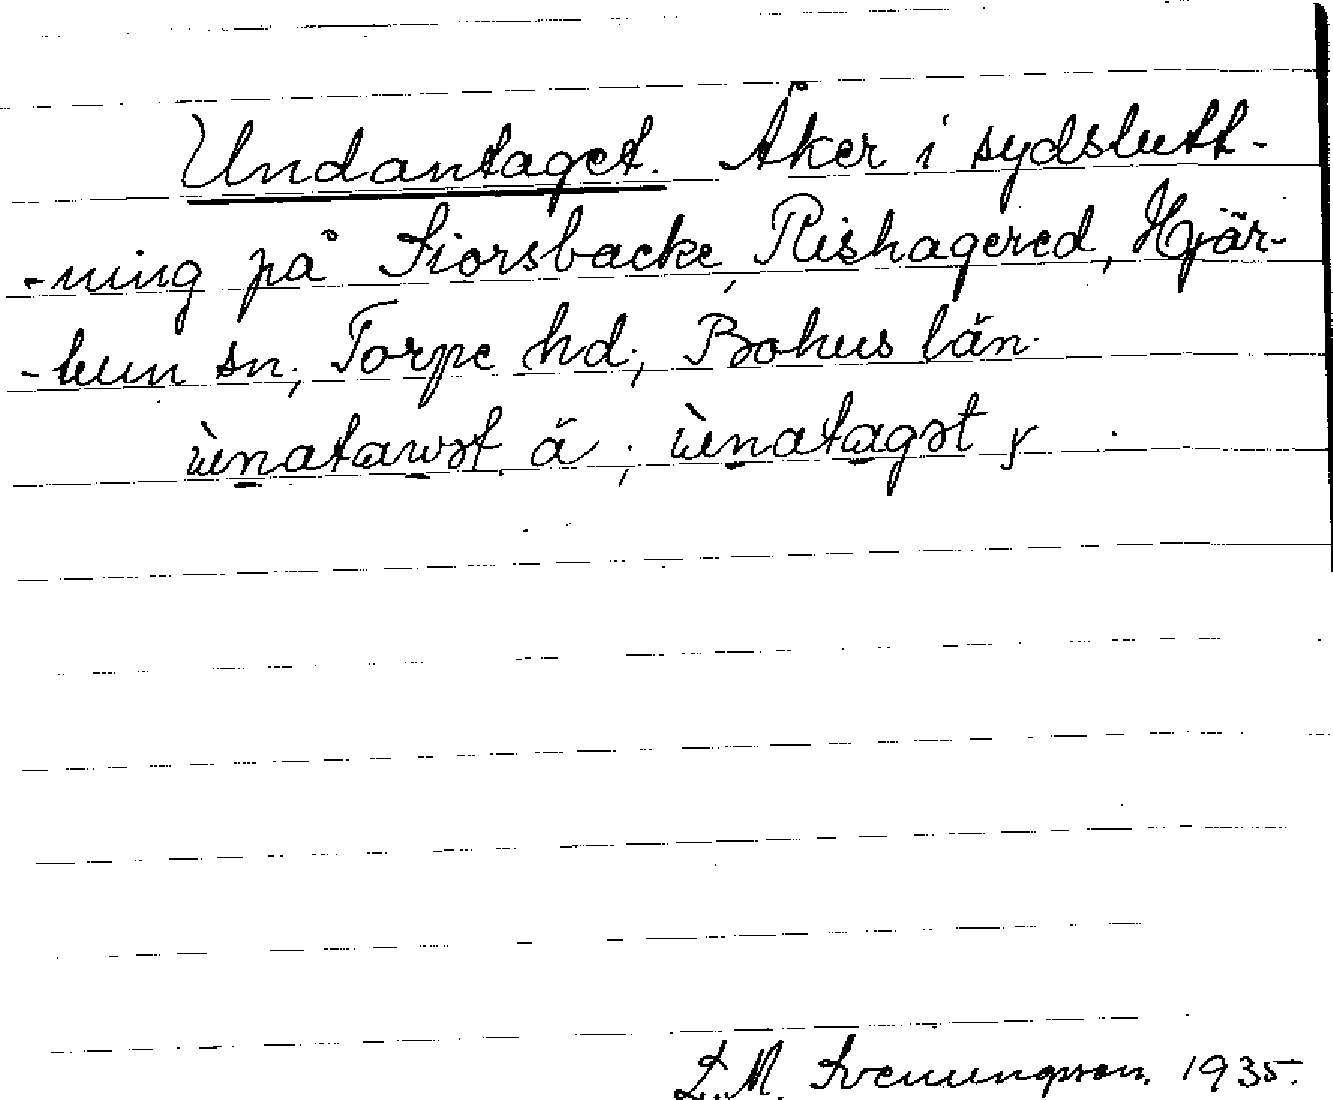 Undantaget. Åker i sydslutt-
-ning på Siorsbacke, Rishagered, Hjär-
-tum sn; Torpe hd; Bohus län.
ùnatawət ä ; ùnatagət y
S.M. Svenungsson. 1935.